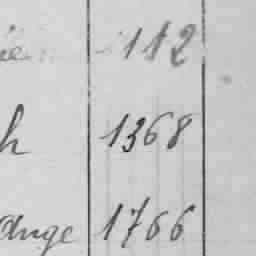 112
h 1368
ange 1766